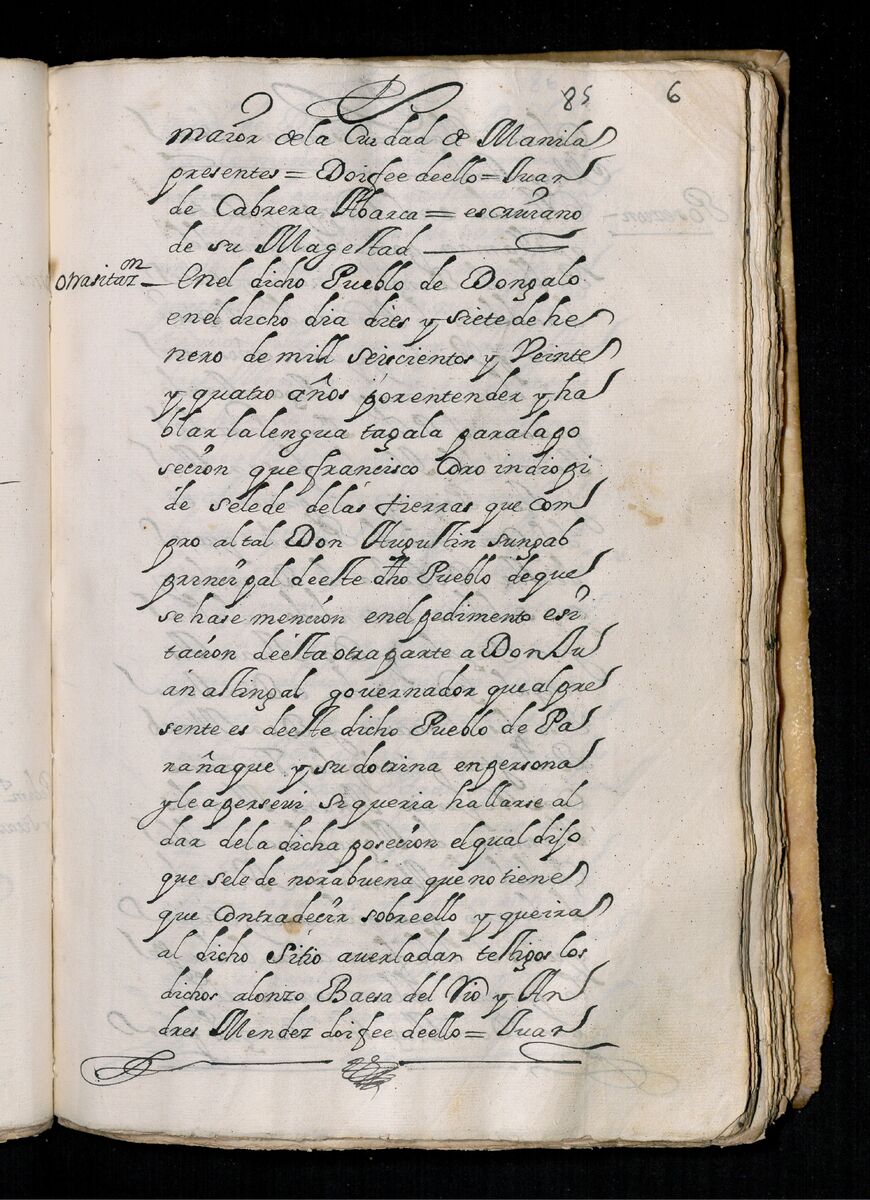 85 6
maior dela Ciudad de Manila
presentes = Doifee deello = Juan
de Cabrera Abarca = escrivano
de su Magestad
otra sitazn
Enel dicho Pueblo de Dongalo
enel dicho dia dies y siete de he
nero de mill seiscientos y Veinte
y quatro años por entender y ha
blar la lengua tagala para la po
secion que francisco Coro indio pi
de sele de de las tierras que com
pro al tal Don Augustin sungab
principal deeste dho Pueblo de que
se hase mencion enel pedimento e si
tacion deesta otra parte a Don Ju
an astingal governador que al pre
sente es deeste dicho Pueblo de Pa
rañaque y su dotrina en persona
y le aperseví si queria hallarse al
dar dela dicha posecion el qual diso
que sele de norabuena que no tiene
que Contradecir sobreello y que ira
al dicho Sitio averla dar testigos los
dichos alonzo Baesa del Rio y An
dres Mendez doifee deello = Juan